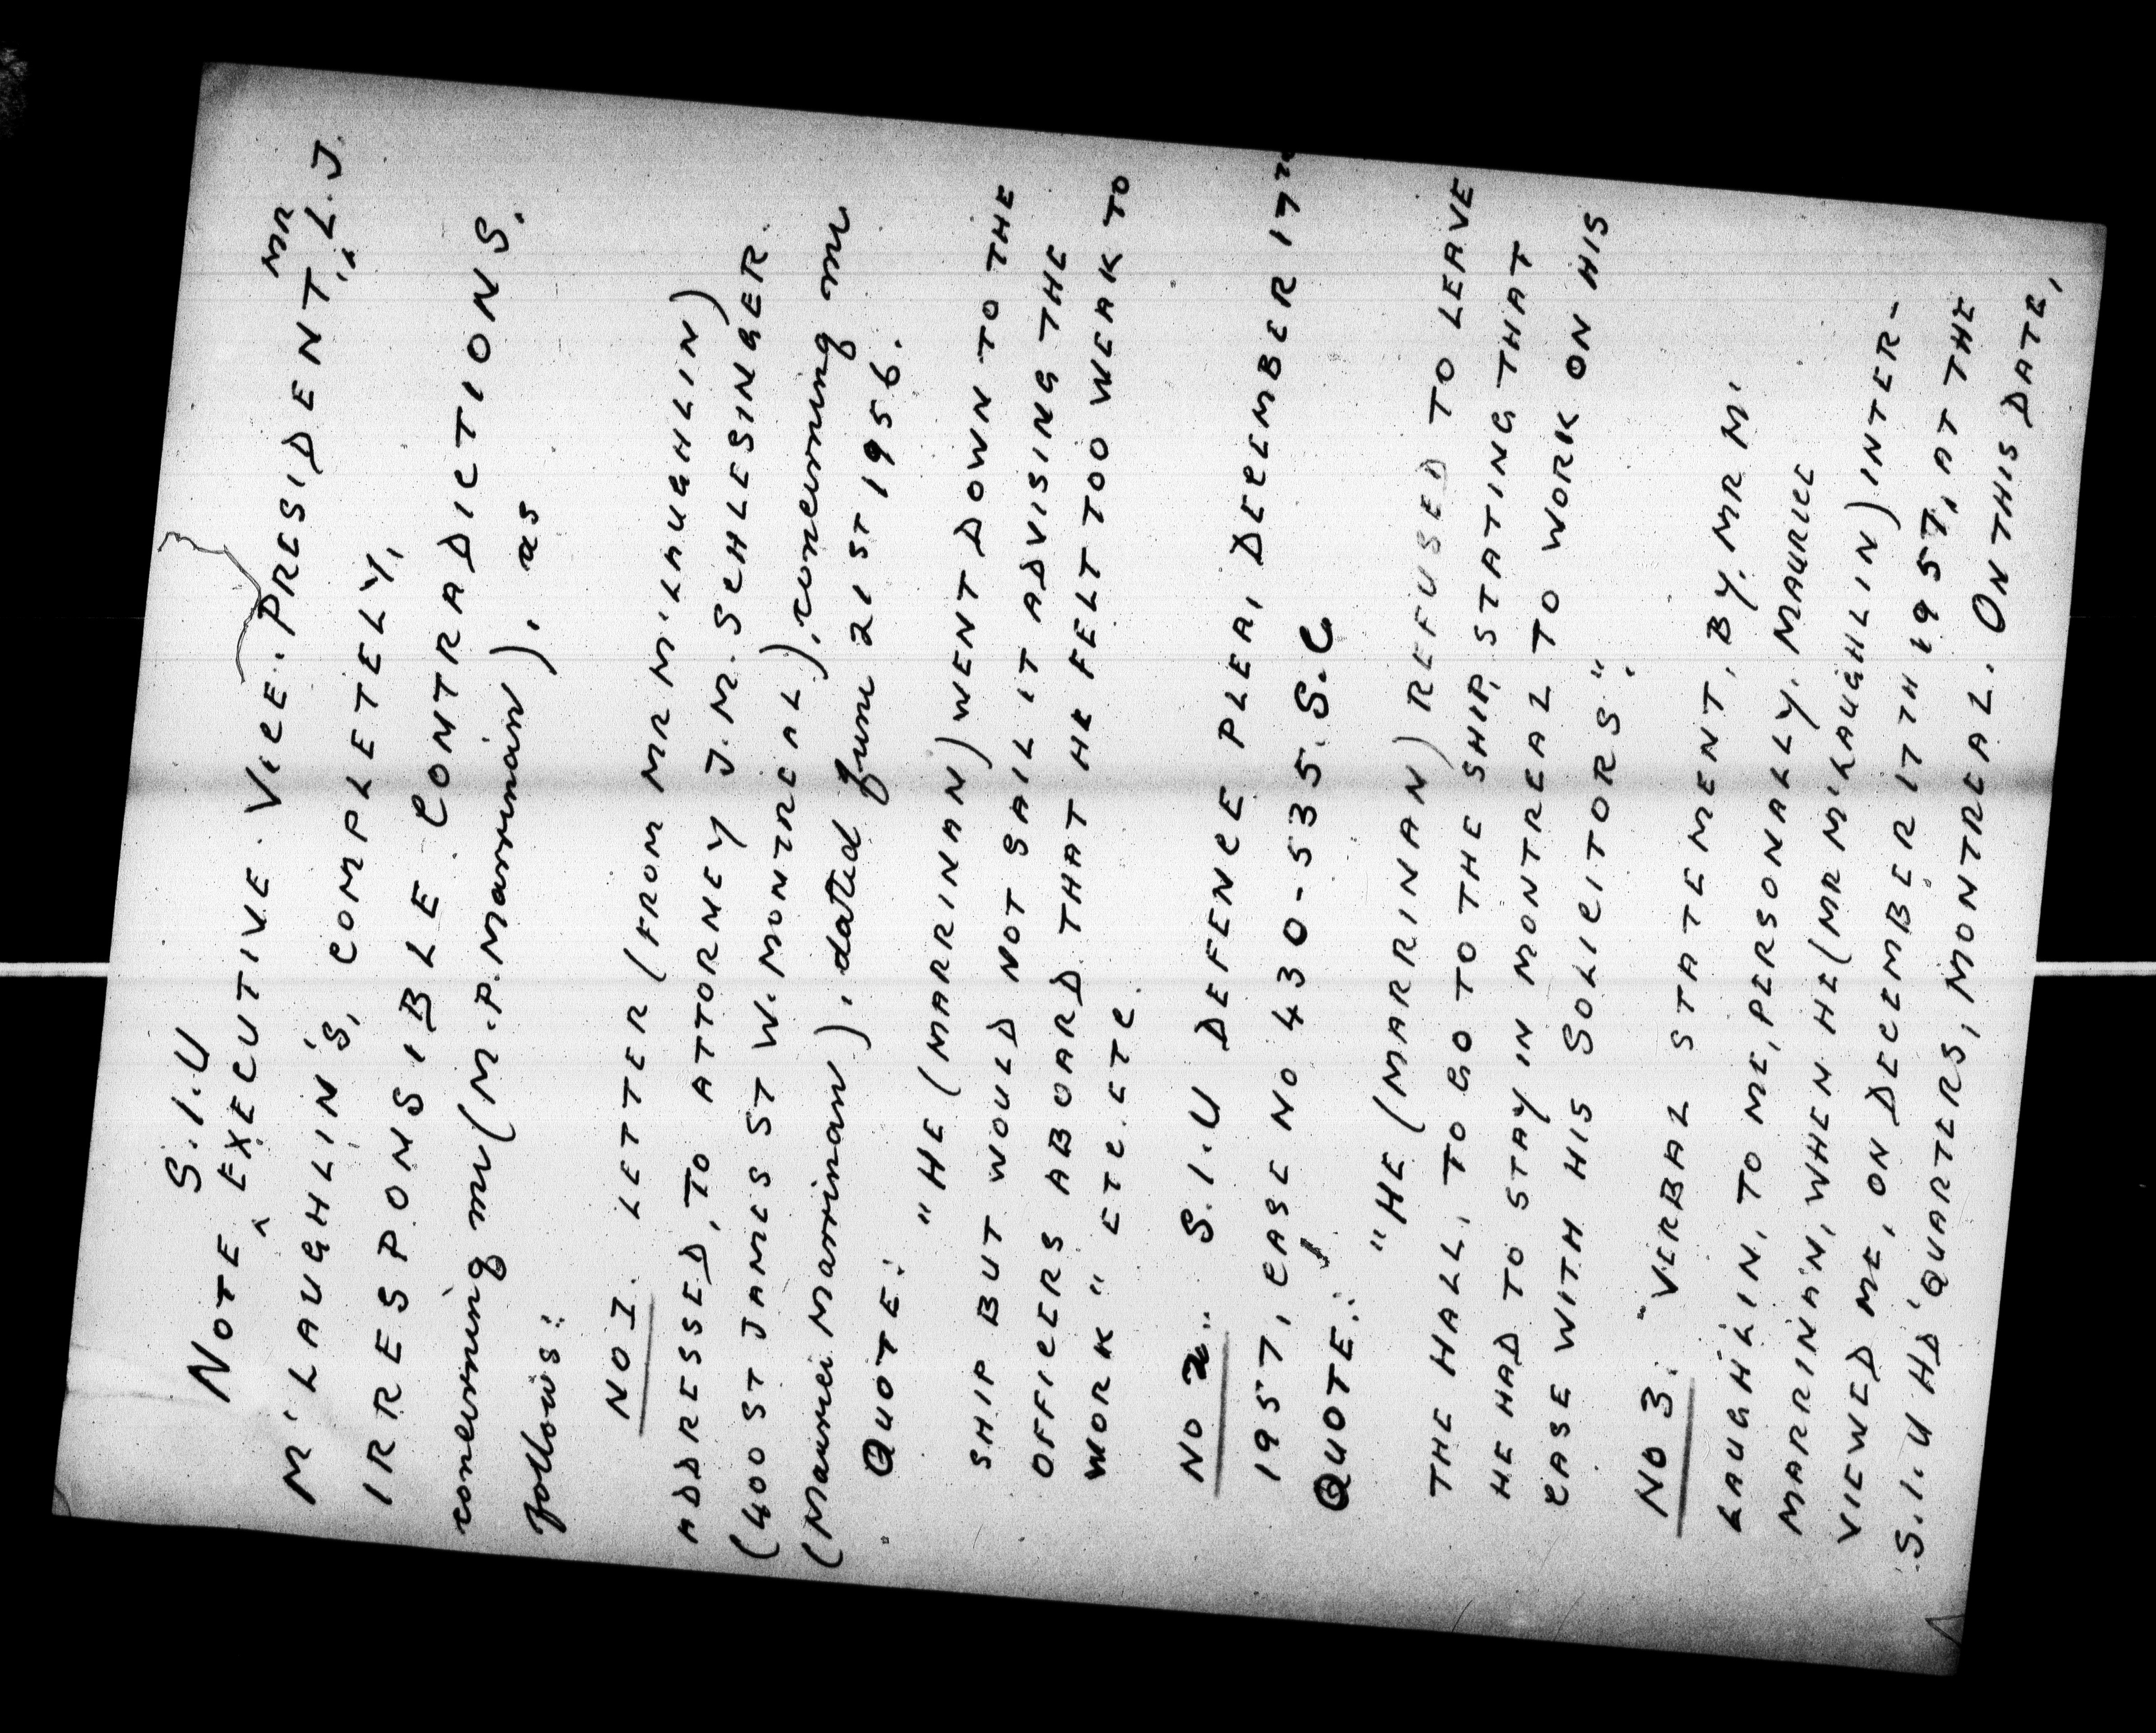 NOTE S.I.U EXECUTIVE. VICE. PRESIDENT, MR L.J.
M'LAUGHLIN'S, COMPLETELY,
IRRESPONSIBLE CONTRADICTIONS.
concerning me (M.P. Marrinan), as
follows:
NO I. LETTER (FROM MR M'LAUGHLIN)
ADDRESSED, TO ATTORNEY J.M. SCHLESINGER.
(400 ST JAMES ST W. MONTREAL), concerning me
(Maurice Marrinan), dated June 21ST 1956.
QUOTE:
"HE (MARRINAN) WENT DOWN TO THE
SHIP BUT WOULD NOT SAIL IT ADVISING THE
OFFICERS ABOARD THAT HE FELT TOO WEAK TO
WORK" ETC. ETC.
NO 2. S.I.U DEFENCE PLEA, DECEMBER 17TH
1957, CASE NO 430-535.S.C
QUOTE:
"HE (MARRINAN) REFUSED TO LEAVE
THE HALL, TO GO TO THE SHIP, STATING THAT
HE HAD TO STAY IN MONTREAL TO WORK ON HIS
CASE WITH HIS SOLICITORS".
NO 3. VERBAL STATEMENT, BY, MR M'
LAUGHLIN, TO ME, PERSONALLY. MAURICE
MARRINAN, WHEN HE (MR M'LAUGHLIN) INTER-
VIEWED ME, ON DECEMBER 17TH 1957, AT THE
S.I.U HD'QUARTERS, MONTREAL. ON THIS DATE,